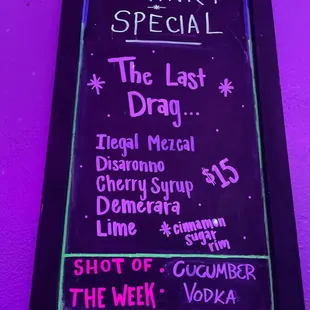 SPECIAL
The Last
Drag...
Ilegal Mezcal
Disaronno
Cherry Syrup
Demerara
Lime
$15
*cinnamon
sugar
rim
SHOT OF
THE WEEK:
CUCUMBER
VODKA